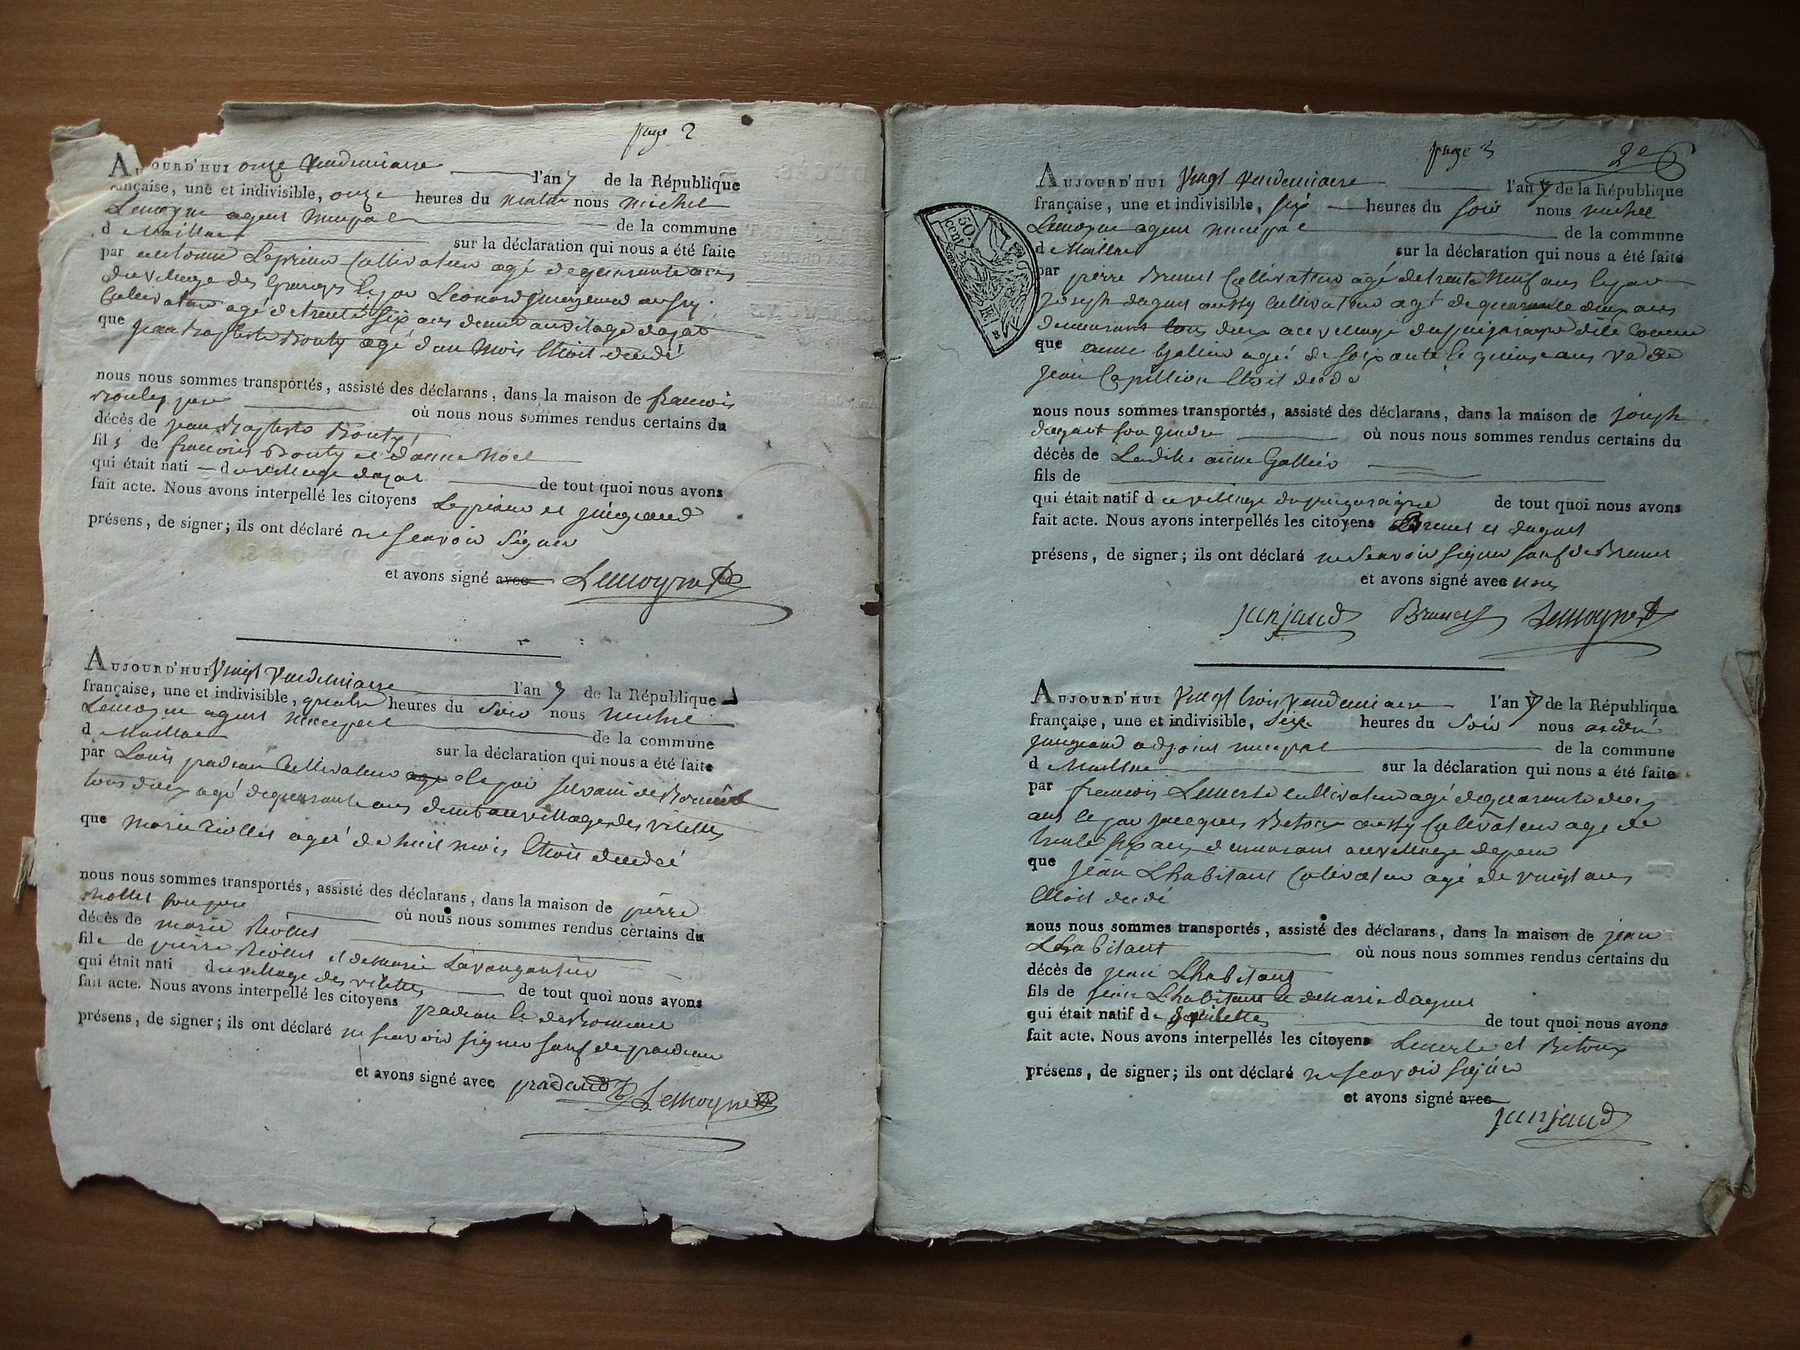 page 2
AUJOURD'HUI onze Vendemiaire l'an 7 de la République
française, une et indivisible, onze heures du matin nous michel
Lemoyne agent municpal de la commune
d Maillac sur la déclaration qui nous a été faite
par antoine Leprieur Cultivateur agé de quarante ans
du village des Leonard aussy
Cultivateur agé de trente six ans demt audilage dazat
que jean Baptiste Bouty agé dun mois Etoit decedé
nous nous sommes transportés, assisté des déclarans, dans la maison de francois
Bouty pere où nous nous sommes rendus certains du
décès de jean Baptiste Bouty
fils de francois Bouty et danne Noel
qui était nati du village dazat de tout quoi nous avons
fait acte. Nous avons interpellé les citoyens Leprieur et jungeaud
présens, de signer; ils ont déclaré ne scavoir signer
et avons signé avec Lemoyne
AUJOURD'HUI Vingt Vendemiaire l'an 7 de la République
française, une et indivisible, quatre heures du Soir nous michel
Lemoyne agent municpal de la commune
d Maillac sur la déclaration qui nous a été faite
par Louis pradeau Cultivateur agé et par silvain
tous deux agé de quarante ans demt au village des vilettes
que marie agée de huit mois Etoit decedé
nous nous sommes transportés, assisté des déclarans, dans la maison de pierre
son pere où nous nous sommes rendus certains du
décès de marie
file de pierre et de marie
qui était nati du village des vilettes de tout quoi nous avons
fait acte. Nous avons interpellé les citoyens pradeau et
présens, de signer; ils ont déclaré ne scavoir signer sauf de pradeau
et avons signé avec pradeaud Lemoyne
page 3
2e
AUJOURD'HUI Vingt Vendemiaire l'an 7 de la République
française, une et indivisible, six heures du Soir nous michel
Lemoyne agent municpal de la commune
d Maillac sur la déclaration qui nous a été faite
50
cent
par pierre Brunet Cultivateur agé de trente Neuf ans et par
Joseph daguet aussy Cultivateur agé de quarante deux ans
demeurant tous deux au village dite Commune
que anne agée de soixante et quinze ans ve de
jean Etoit decedé
nous nous sommes transportés, assisté des déclarans, dans la maison de joseph
daguet son gendre où nous nous sommes rendus certains du
décès de Ladite anne
fils de
qui était natif d u village de tout quoi nous avons
fait acte. Nous avons interpellés les citoyens Brunet et daguet
présens, de signer; ils ont déclaré ne scavoir signer sauf de Brunet
et avons signé avec nous
junjaud Brunet Lemoyne
AUJOURD'HUI Vingt trois Vendemiaire l'an 7 de la République
française, une et indivisible, Six heures du Soir nous andré
jungeaud adjoint municpal de la commune
d Maillac sur la déclaration qui nous a été faite
par francois Lemerle cultivateur agé de quarante deux
ans et par jacques Betoux aussy Cultivateur age de
trente six ans demeurant au village
que jean Lhabitant Cultivateur agé de vingt ans
Etoit decedé
nous nous sommes transportés, assisté des déclarans, dans la maison de jean
Lhabitant où nous nous sommes rendus certains du
décès de jean Lhabitant
fils de jean Lhabitant et de marie daguet
qui était natif d e de tout quoi nous avons
fait acte. Nous avons interpellés les citoyens Lemerle et Betoux
présens, de signer; ils ont déclaré ne scavoir signer
et avons signé avec
junjaud